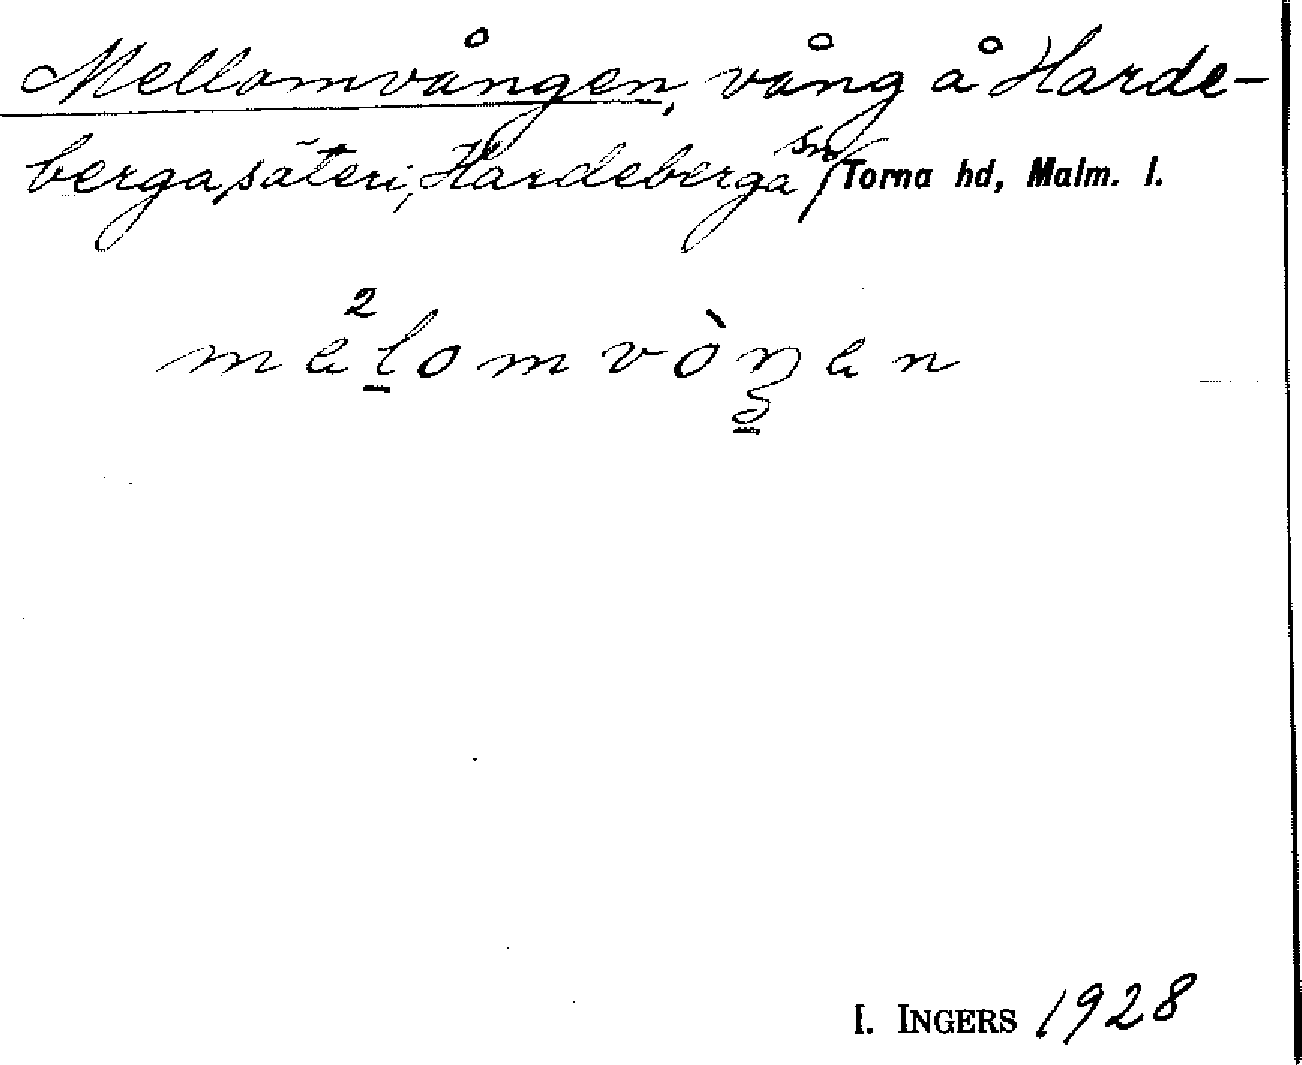 Mellomvången, vång å Harde-
berga säteri, Hardeberga sn, Torna hd, Malm. l.
me²lomvòŋen
I. INGERS 1928